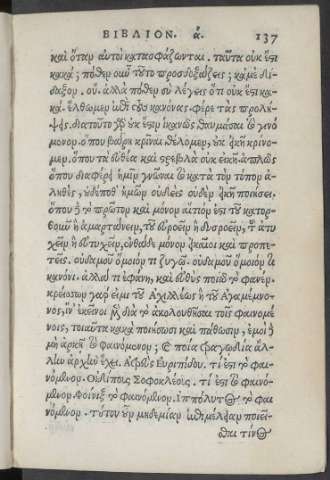 ΒΙΒΛΙΟΝ. ά. 137
καὶ ὅταν αὐτοὶ κατασφάζωνται. ταῦτα οὐκ ἔστι
κακά; πόθεν οὖν τοῦτο προσδοξάζεις; κἀμὲ δί-
δαξον. οὔ. ἀλλὰ πόθεν σὺ λέγεις ὅτι οὐκ ἔστι κα-
κά. ἔλθωμεν ἐπὶ τοὺς κανόνας. φέρε τὰς προλή-
ψεις. διατοῦτο γὰρ οὐκ ἔστιν ἱκανῶς θαυμάσαι τὸ γινό
μενον. ὅπου βάρη κρῖναι θέλομεν, οὐκ εἰκῆ κρίνο-
μεν. ὅπου τὰ εὐθέα καὶ στρεβλὰ οὐκ εἰκῆ. ἁπλῶς
ὅπου διαφέρει ἡμῖν γνῶναι τὸ κατὰ τὸν τόπον ἀ-
ληθὲς, οὐδέποθ' ἡμῶν οὐδεὶς οὐδὲν εἰκῆ ποιήσει.
ὅπου δὲ τὸ πρῶτον καὶ μόνον αἴτιον ἐστὶ τοῦ κατορ-
θοῦν ἢ ἁμαρτάνειν, τοῦ εὐροεῖν ἢ δυσροεῖν, τοῦ ἀτυ
χεῖν ἢ εὐτυχεῖν, ἐνθάδε μόνον εἰκαῖοι καὶ προπε-
τεῖς. οὐδαμοῦ ὅμοιόν τι ζυγῷ. οὐδαμοῦ ὅμοιόν τι
κανόνι. ἀλλά τι ἐφάνη, καὶ εὐθὺς ποιῶ τὸ φανέν.
κρείσσων γάρ εἰμι τοῦ Ἀχιλλέως ἢ τοῦ Ἀγαμέμνο-
νος, ἵν' ἐκεῖνοι μὲν διὰ τὸ ἀκολουθῆσαι τοῖς φαινομέ
νοις, τοιαῦτα κακὰ ποιήσωσι καὶ πάθωσιν, ἐμοὶ δὲ
μὴ ἀρκῇ τὸ φαινόμενον; καὶ ποία τραγωδία ἄλ-
λην ἀρχὴν ἔχει. Ἀτρεὺς Εὐριπίδου. τί ἐστι τὸ φαι-
νόμενον. Οἰδίπους Σοφοκλέους. τί ἐστι τὸ φαινό-
μενον. Φοίνιξ τὸ φαινόμενον. ἱππόλυτος τὸ φαι
νόμενον. τούτου οὖν μηδεμίαν ἐπιμέλειαν ποιεῖ-
σθαι τίνος